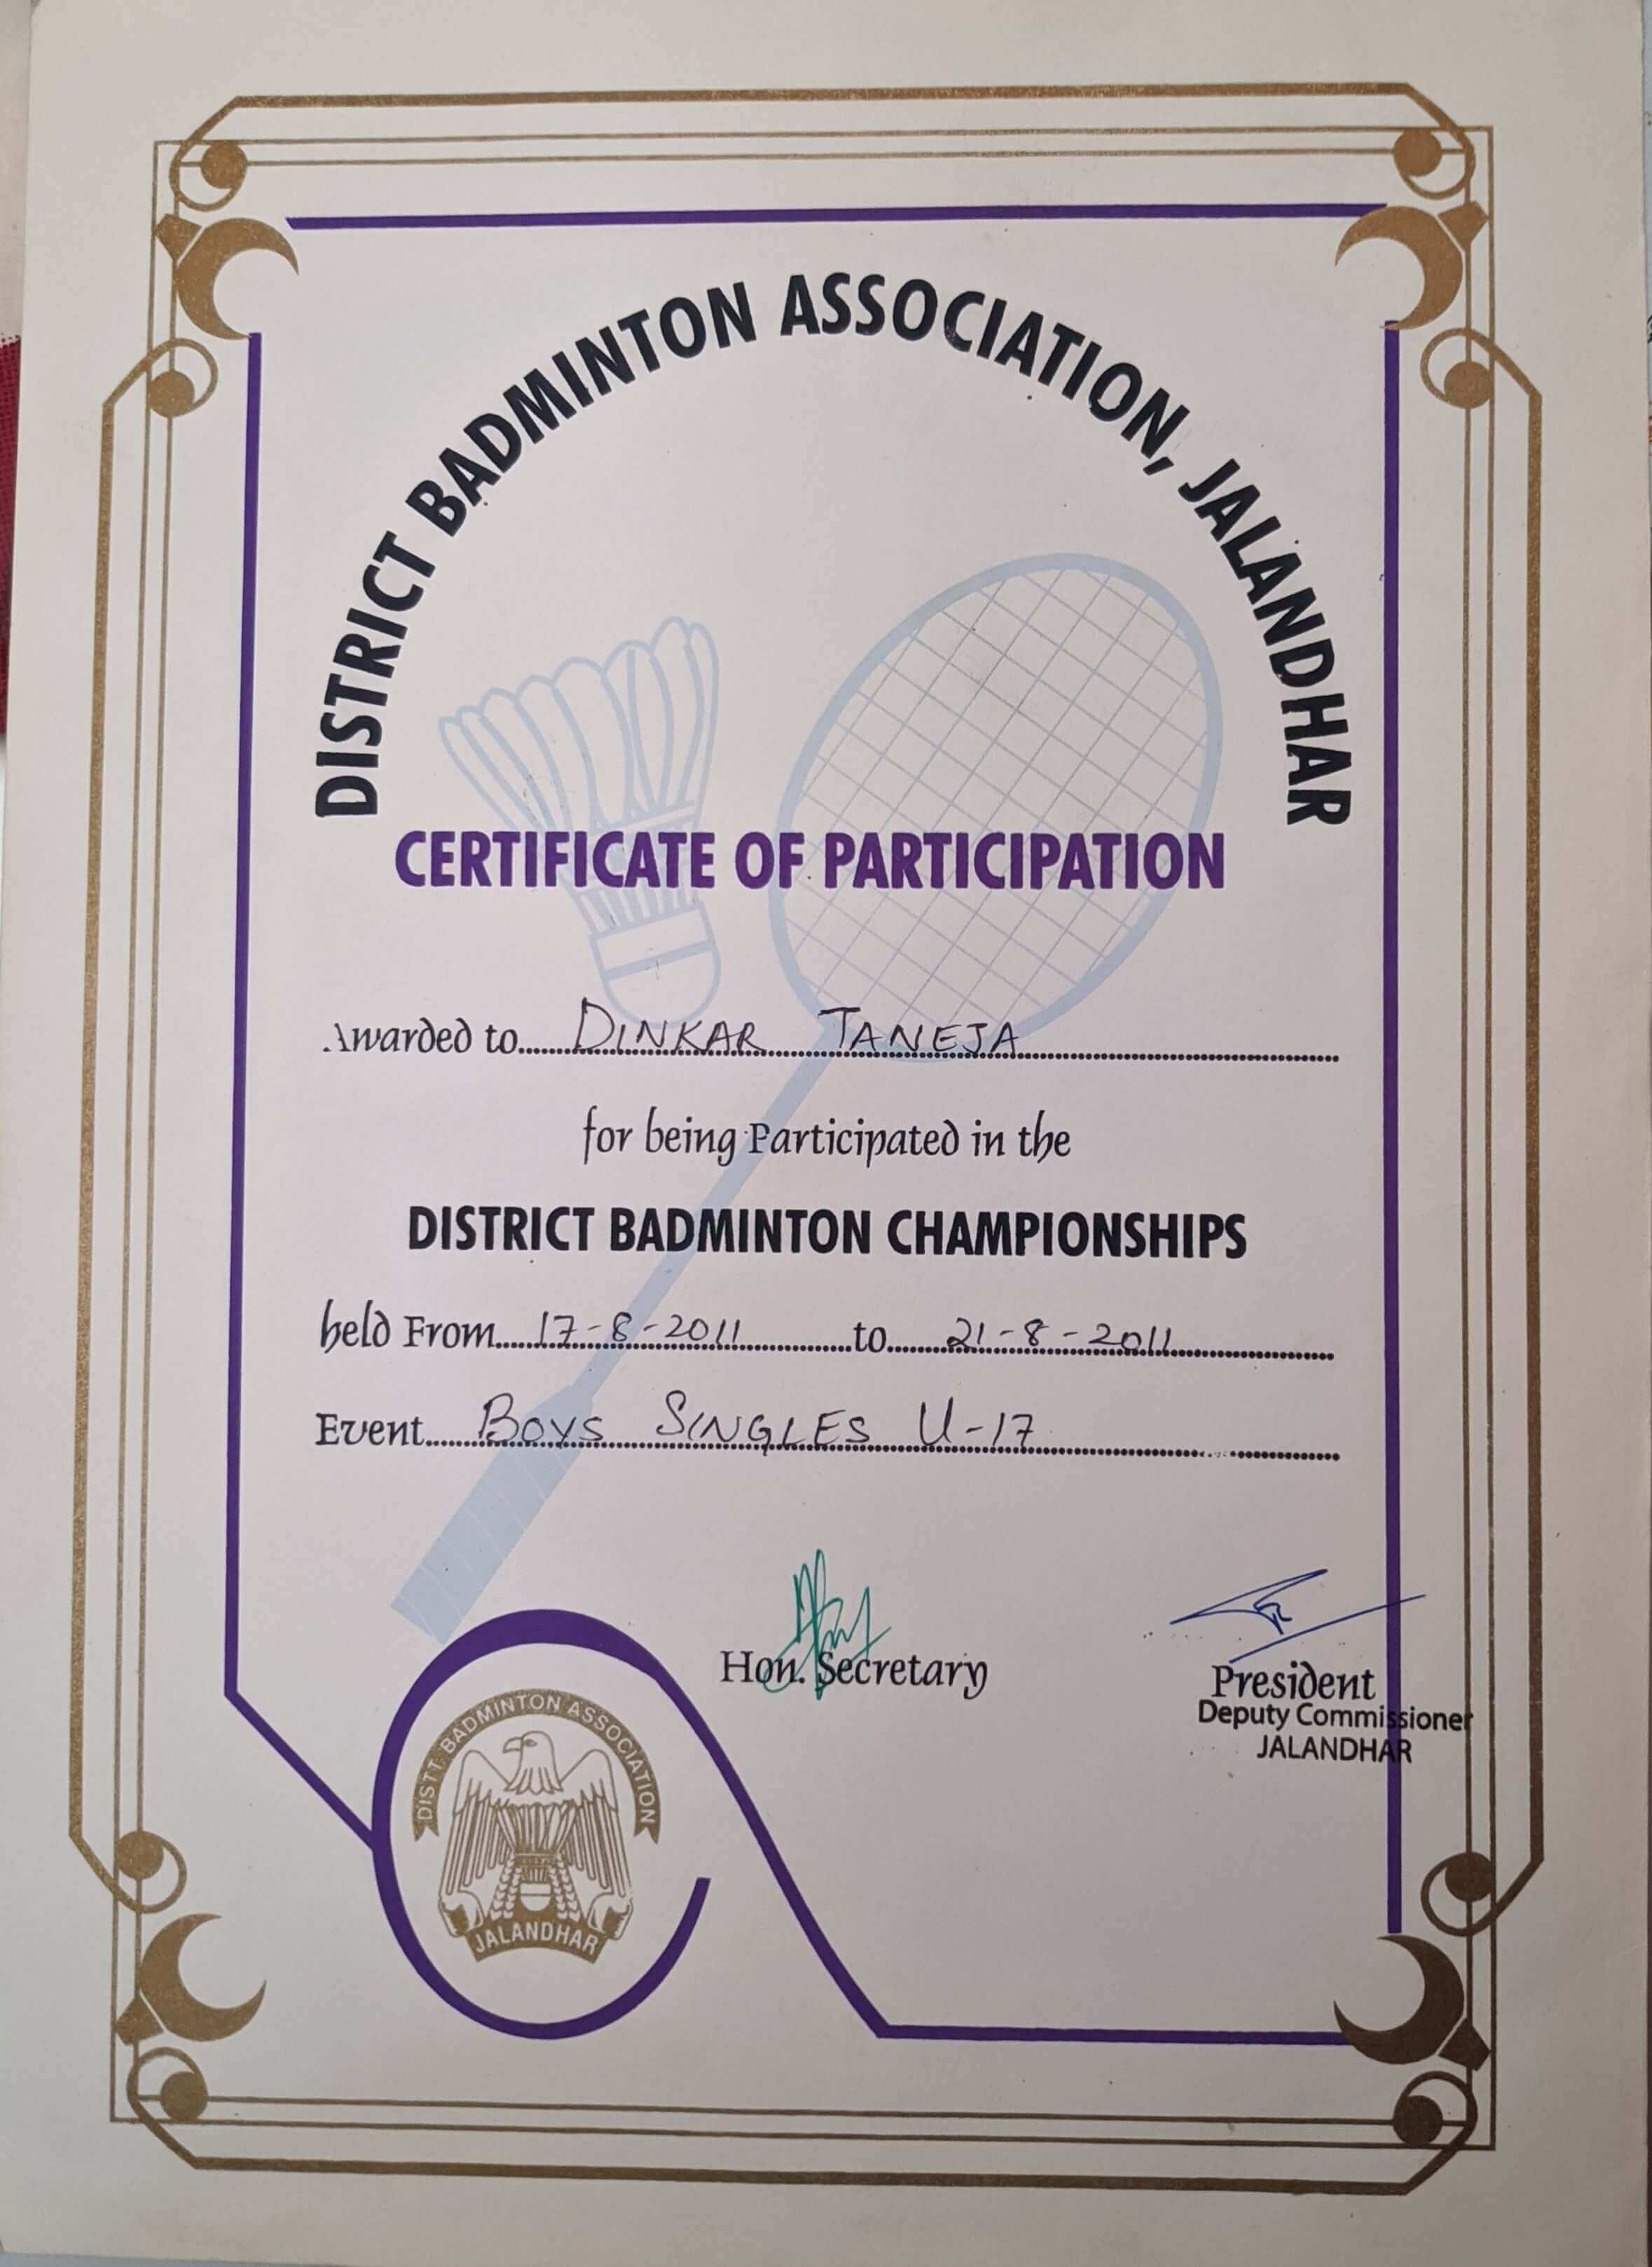 DISTRICT BADMINTON ASSOCIATION, JALANDHAR
CERTIFICATE OF PARTICIPATION
Awarded to DINKAR TANEJA
for being Participated in the
DISTRICT BADMINTON CHAMPIONSHIPS
held From 17-8-2011 to 21-8-2011
Event BOYS SINGLES U-17
Hon. Secretary
President
Deputy Commissioner
JALANDHAR
DISTT. BADMINTON ASSOCIATION
JALANDHAR